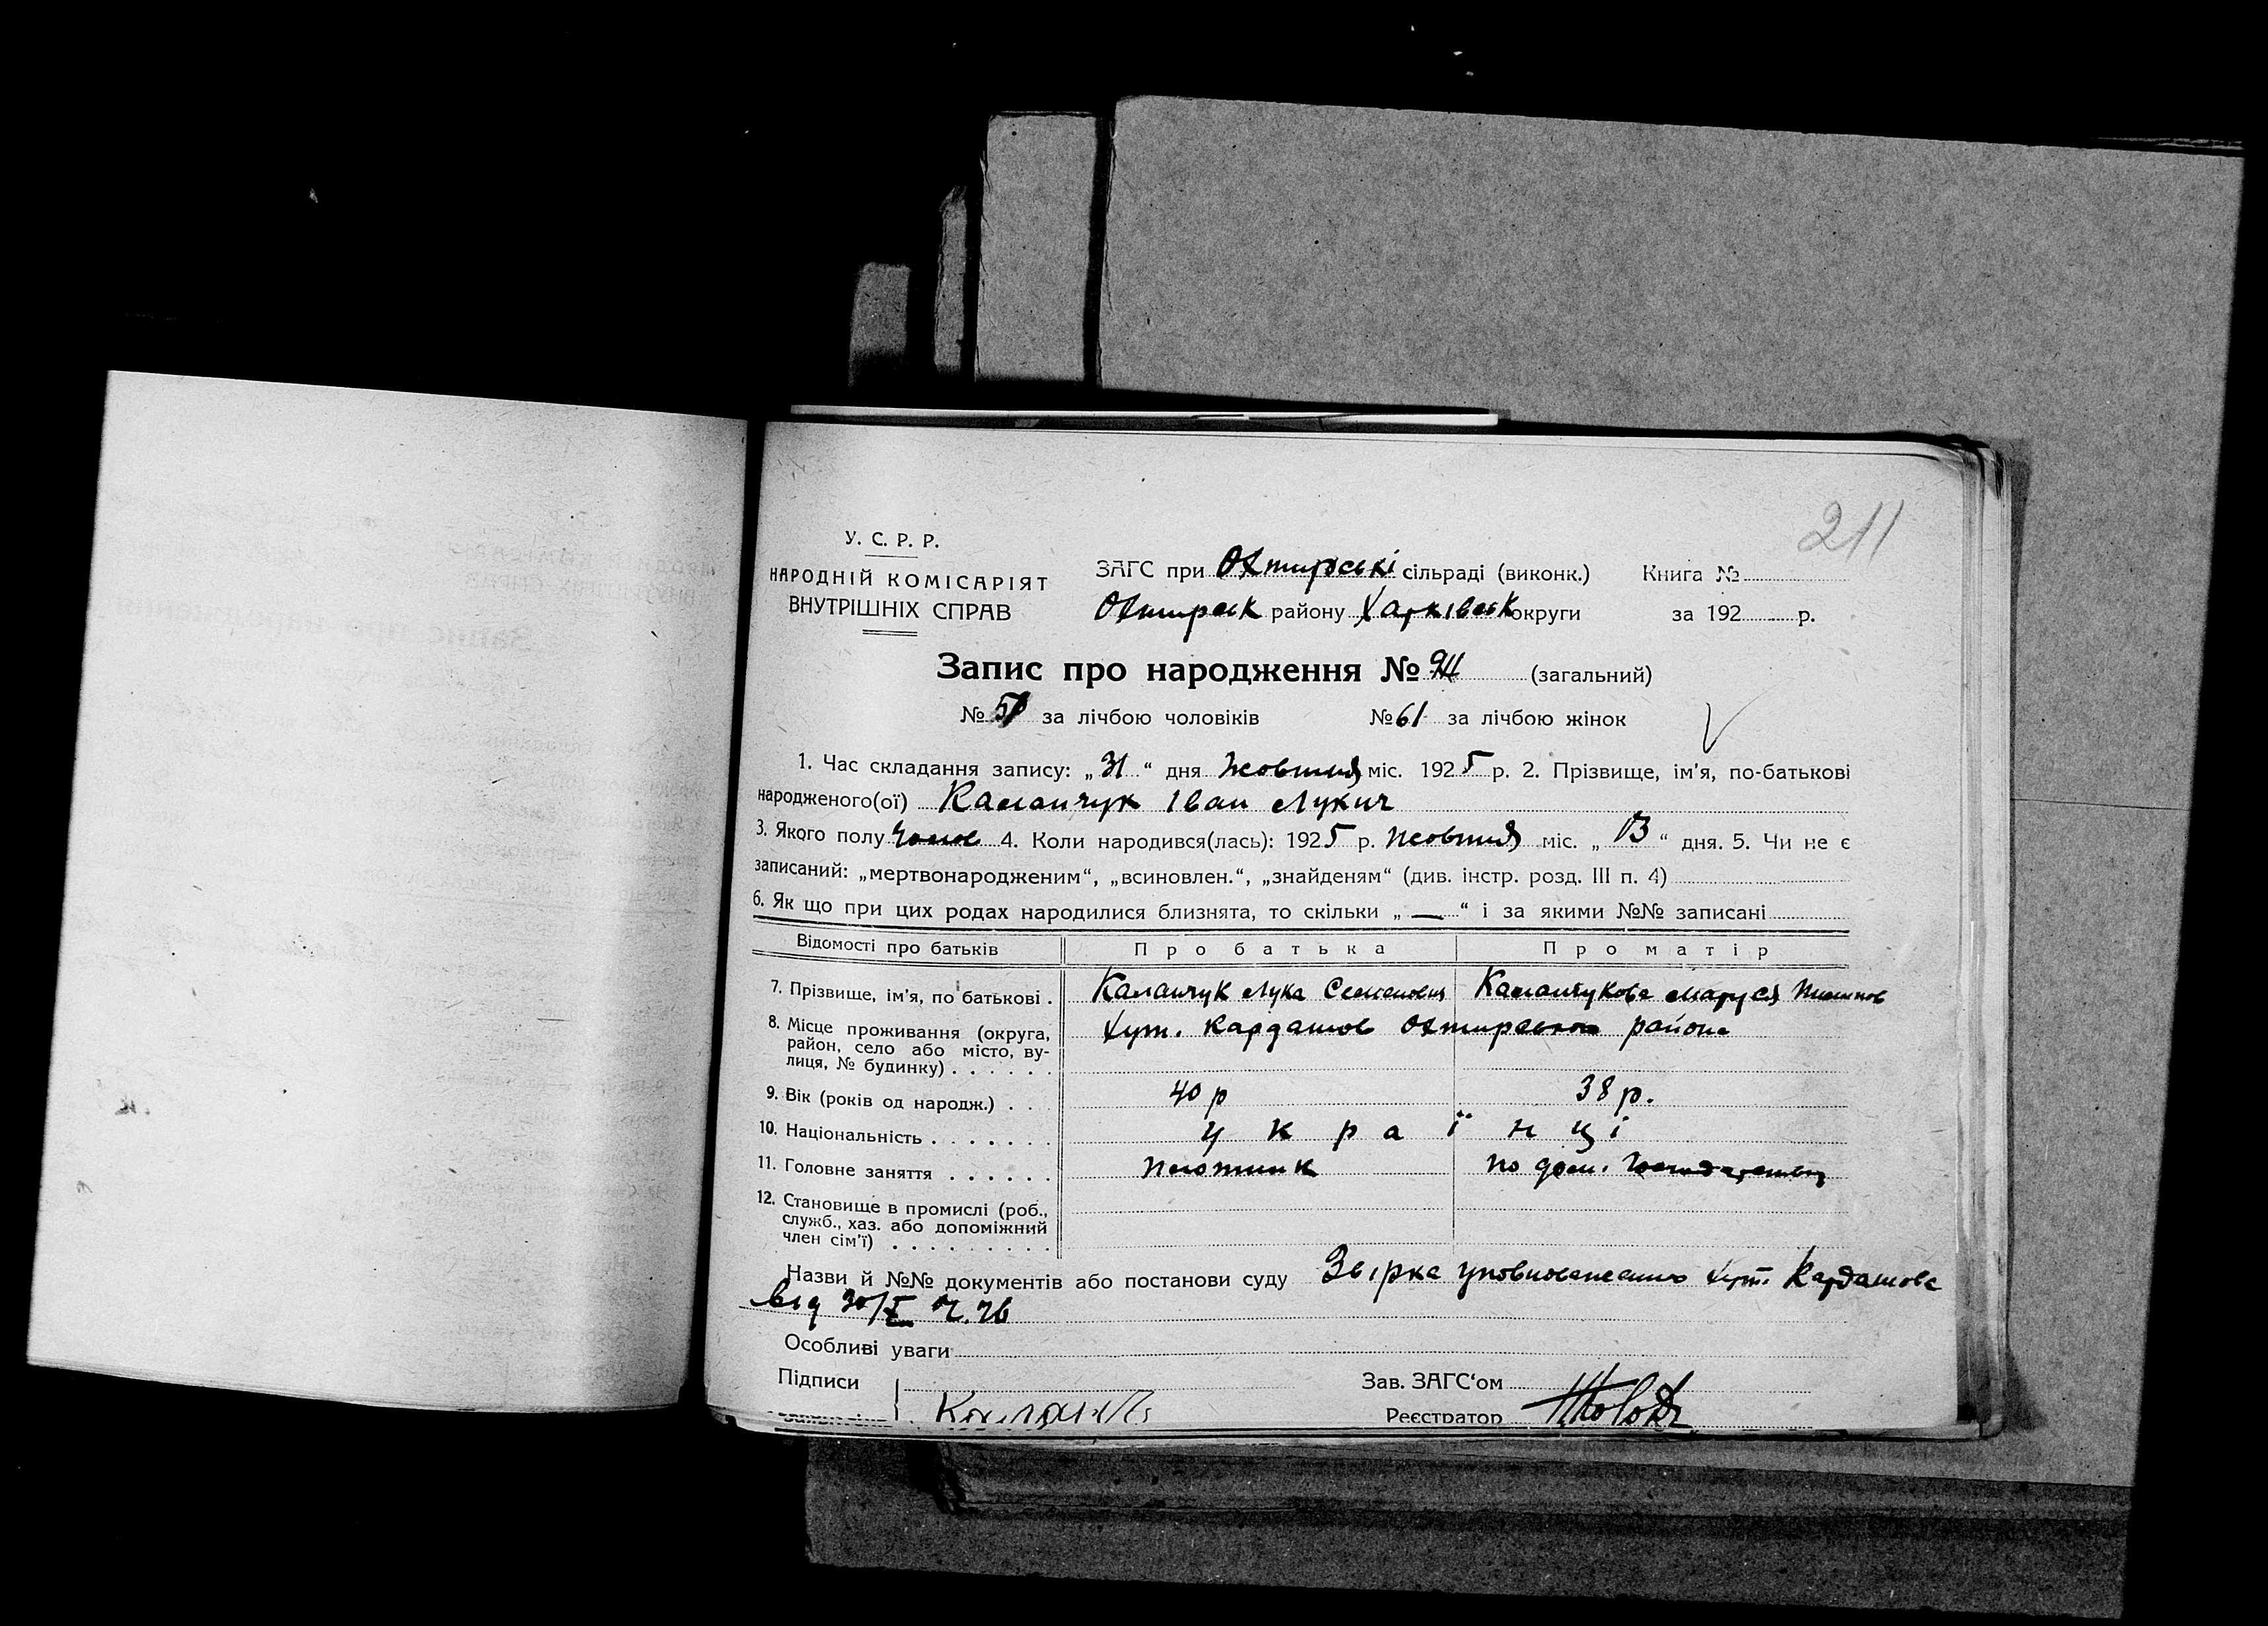 211
У. С. Р. Р.
НАРОДНІЙ КОМІСАРІЯТ
ВНУТРІШНІХ СПРАВ
ЗАГС при Охтирські сільраді (виконк.) Книга №
Охтирськ району Харківськ округи за 192 р.
Запис про народження № (загальний)
№ за лічбою чоловіків №61 за лічбою жінок
1. Час складання запису: „31“ дня Жовтня міс. 1925 р. 2. Прізвище, ім'я, по-батькові
народженого(ої) Каланчук Іван Лукич
3. Якого полу Чолов 4. Коли народився(лась): 1925 р. Жовтня міс. „13“ дня. 5. Чи не є
записаний: „мертвонародженим“, „всиновлен.“, „знайденям“ (див. інстр. розд. III п. 4)
6. Як що при цих родах народилися близнята, то скільки „—“ і за якими №№ записані
Відомості про батьків Про батька Про матір
7. Прізвище, ім'я, по батькові . Каланчук Лука Семенович Каланчукова Маруся
8. Місце проживання (округа, район, село або місто, ву-
лиця, № будинку) . . . . . . Хут. Кардашов Охтирського района
9. Вік (років од народж.) . . . 40 р 38 р.
10. Національність . . . . . . . українці
11. Головне заняття . . . . . . плотник по дом. господарству
12. Становище в промислі (роб.,
служб., хаз. або допоміжний
член сім'ї) . . . . . . . . .
Назви й №№ документів або постанови суду уповноваженого хут. Кардашова
від 30/X
Особливі уваги
Підписи Зав. ЗАГС‘ом
Реєстратор